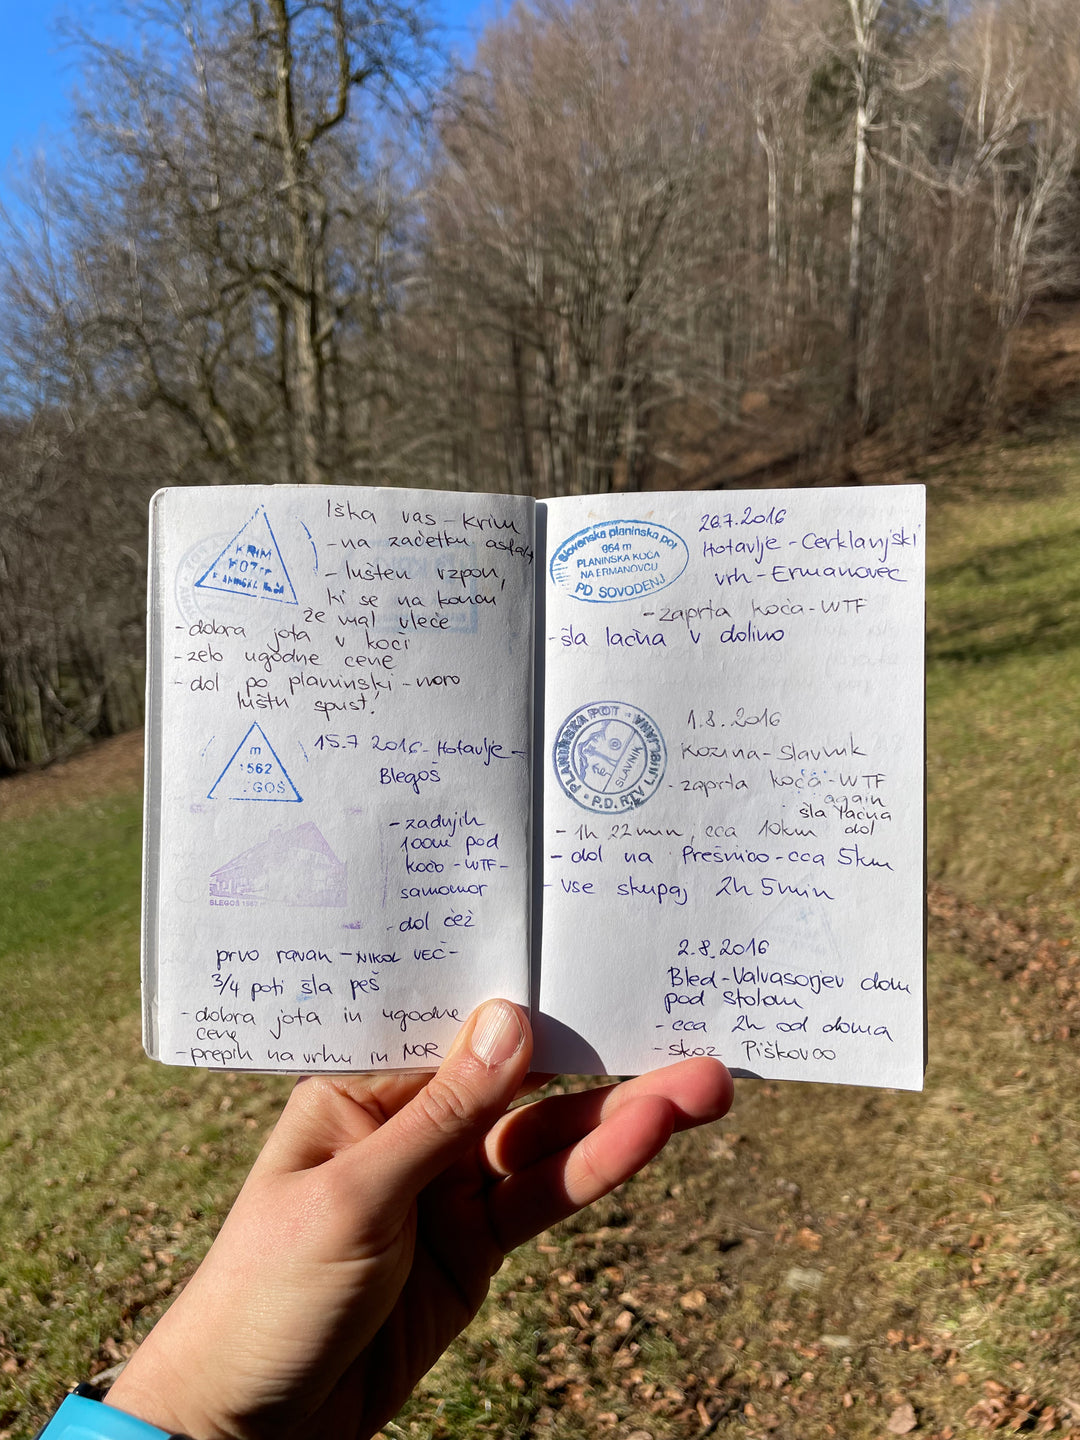 Iška vas - Krim
- na začetku asfalt
- lušten vzpon,
ki se na koncu
že mal vleče
KRIM
1107 m
PLANINSKI KOČA
- dobra jota v koči
- zelo ugodne cene
- dol po planinski - noro
luštn spust!
m
1562
GOŠ
15.7 2016 - Hotavlje -
Blegoš
- zadnjih
100m pod
kočo - WTF -
samomor
BLEGOŠ 1562
- dol čez
prvo ravan - NIKOL VEČ -
3/4 poti šla peš
- dobra jota in ugodne
cene
- prepih na vrhu in NOR
Slovenska planinska pot
964 m
PLANINSKA KOČA
NA ERMANOVCU
PD SOVODENJ
28.7.2016
Hotavlje - Cerkljanski
vrh - Ermanovec
- zaprta koča - WTF
- šla lačna v dolino
PLANINSKA POT
P.D. RTV LJUBLJANA
SLAVNIK
1.8.2016
Kozina - Slavnik
- zaprta koča - WTF
again
šla lačna
- 1h 22min, cca 10km dol
- dol na Prešnico - cca 5km
- vse skupaj 2h 5min
2.8.2016
Bled - Valvasorjev dom
pod Stolom
- cca 2h od doma
- skoz Piškovco